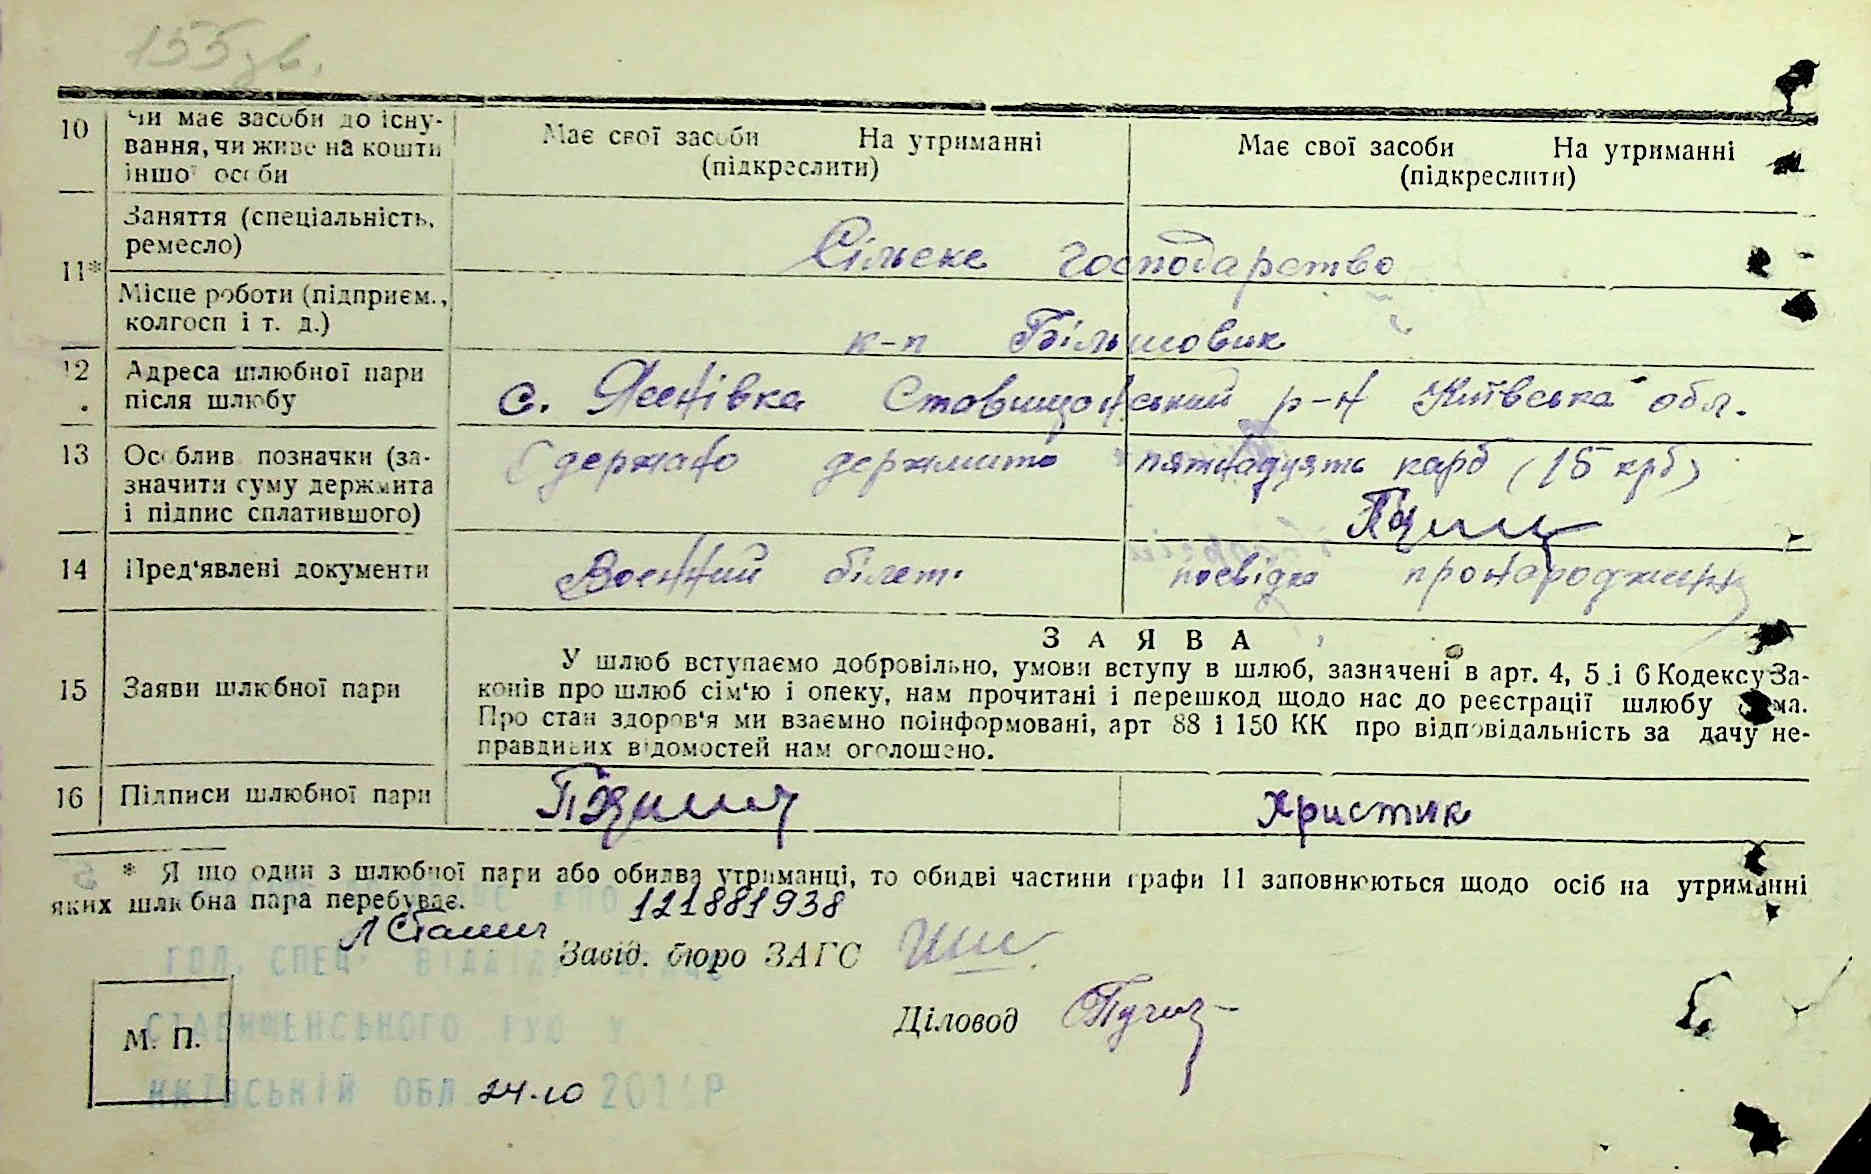 155зв.
10 Чи має засоби до існу-
вання, чи живе на кошти
іншої особи
Має свої засоби На утриманні
(підкреслити)
Має свої засоби На утриманні
(підкреслити)
11*
Заняття (спеціальність,
ремесло)
Сільске господарство
Місце роботи (підприєм.,
колгосп і т. д.)
к-п Більшовик
12 Адреса шлюбної пари
після шлюбу
с. Ясенівка Ставищанський р-н Київська обл.
13 Особлив позначки (за-
значити суму держмита
і підпис сплатившого)
Одержано держмито пятнадцять карб (15 крб)
14 Пред'явлені документи
Воєнний білет. посвідка про народження
15 Заяви шлюбної пари
ЗАЯВА
У шлюб вступаємо добровільно, умови вступу в шлюб, зазначені в арт. 4, 5 і 6 Кодексу За-
конів про шлюб сім'ю і опеку, нам прочитані і перешкод щодо нас до реєстрації шлюбу нема.
Про стан здоров'я ми взаємно поінформовані, арт 88 і 150 КК про відповідальність за дачу не-
правдивих відомостей нам оголошено.
16 Підписи шлюбної пари
Христик
* Якщо один з шлюбної пари або обидва утриманці, то обидві частини графи 11 заповнюються щодо осіб на утриманні
яких шлюбна пара перебуває.
121881938
Завід. бюро ЗАГС
ГОЛ. СПЕЦ. ВІДДІЛУ
Діловод
СТАВИЩЕНСЬКОГО РУЮ У
М. П.
КИЇВСЬКІЙ ОБЛ. 24.10